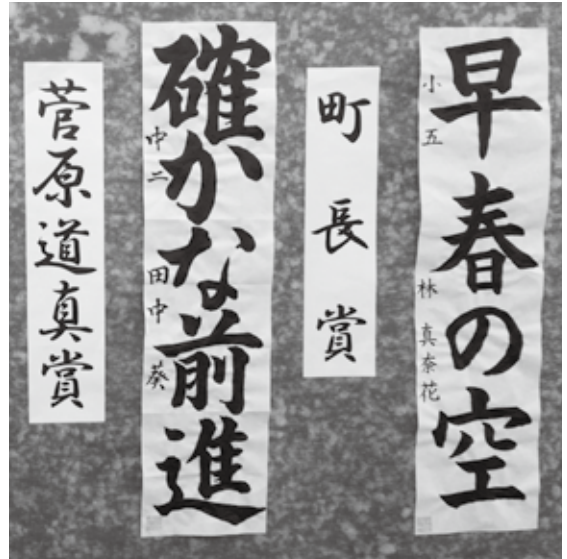 早春の空
小五 林 真奈花
町長賞
確かな前進
中二 田中 葵
菅原道真賞